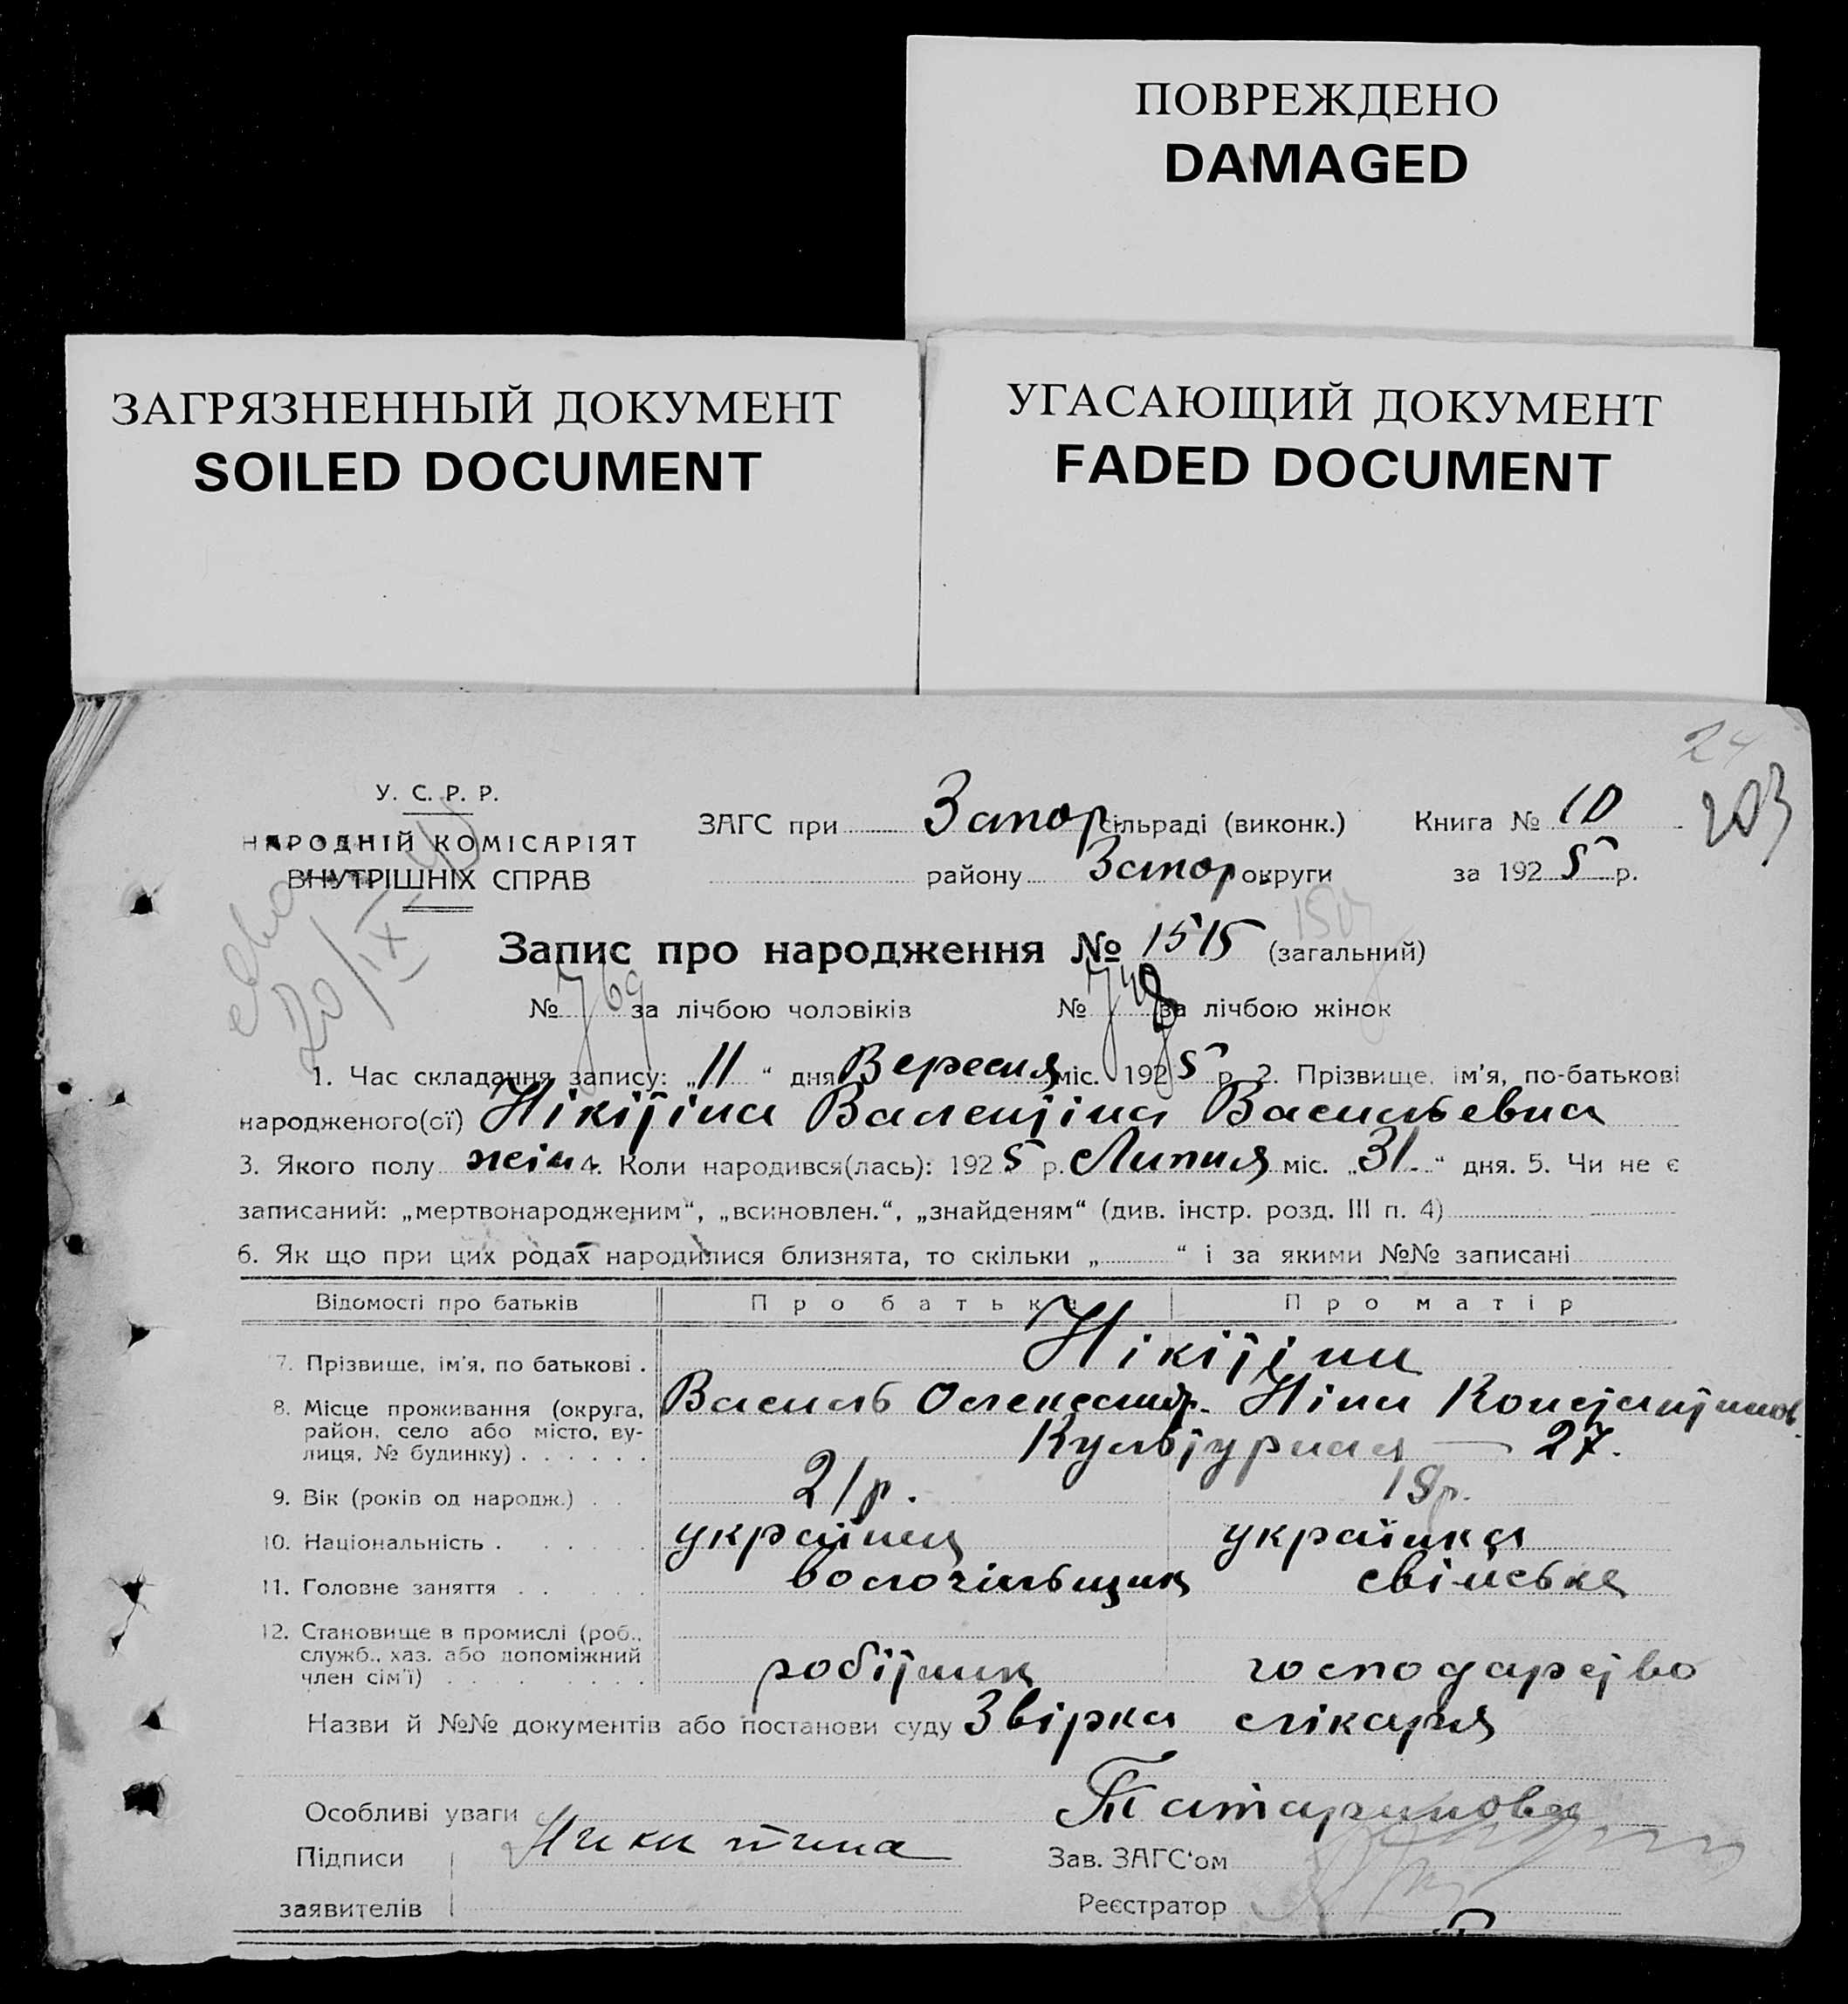 ПОВРЕЖДЕНО
DAMAGED
ЗАГРЯЗНЕННЫЙ ДОКУМЕНТ
SOILED DOCUMENT
УГАСАЮЩИЙ ДОКУМЕНТ
FADED DOCUMENT
24
203
У. С. Р. Р.
НАРОДНІЙ КОМІСАРІЯТ
ВНУТРІШНІХ СПРАВ
ЗАГС при Запор. сільраді (виконк.) Книга № 10
району Запор округи за 1925 р.
Запис про народження № 1515 (загальний)
№ 769 за лічбою чоловіків № за лічбою жінок
20/IX
1. Час складання запису: „11“ дня Вересня міс. 1925 р. 2. Прізвище, ім'я, по-батькові
народженого(ої) Нікітіна Валентіна Васильевна
3. Якого полу жін. 4. Коли народився(лась): 1925 р. Липня міс. „31.“ дня. 5. Чи не є
записаний: „мертвонародженим“, „всиновлен.“, „знайденям“ (див. інстр. розд. III п. 4)
6. Як що при цих родах народилися близнята, то скільки „ “ і за якими №№ записані
Відомості про батьків Про батька Про матір
7. Прізвище, ім'я, по батькові . Нікітіни
8. Місце проживання (округа, район, село або місто, вулиця, № будинку) . . . . . . Василь Олександр. Ніна Констянтинов.
Культурная — 27.
9. Вік (років од народж.) . . 21 р. 18 р.
10. Національність . . . . . . українец українка
11. Головне заняття . . . . . волочільщик свійське
12. Становище в промислі (роб., служб., хаз. або допоміжний член сім'ї) . . . . . . . робітник господарство
Назви й №№ документів або постанови суду Звірка лікаря
Татаринова
Особливі уваги
Підписи Никитина Зав. ЗАГС'ом
заявителів Реєстратор